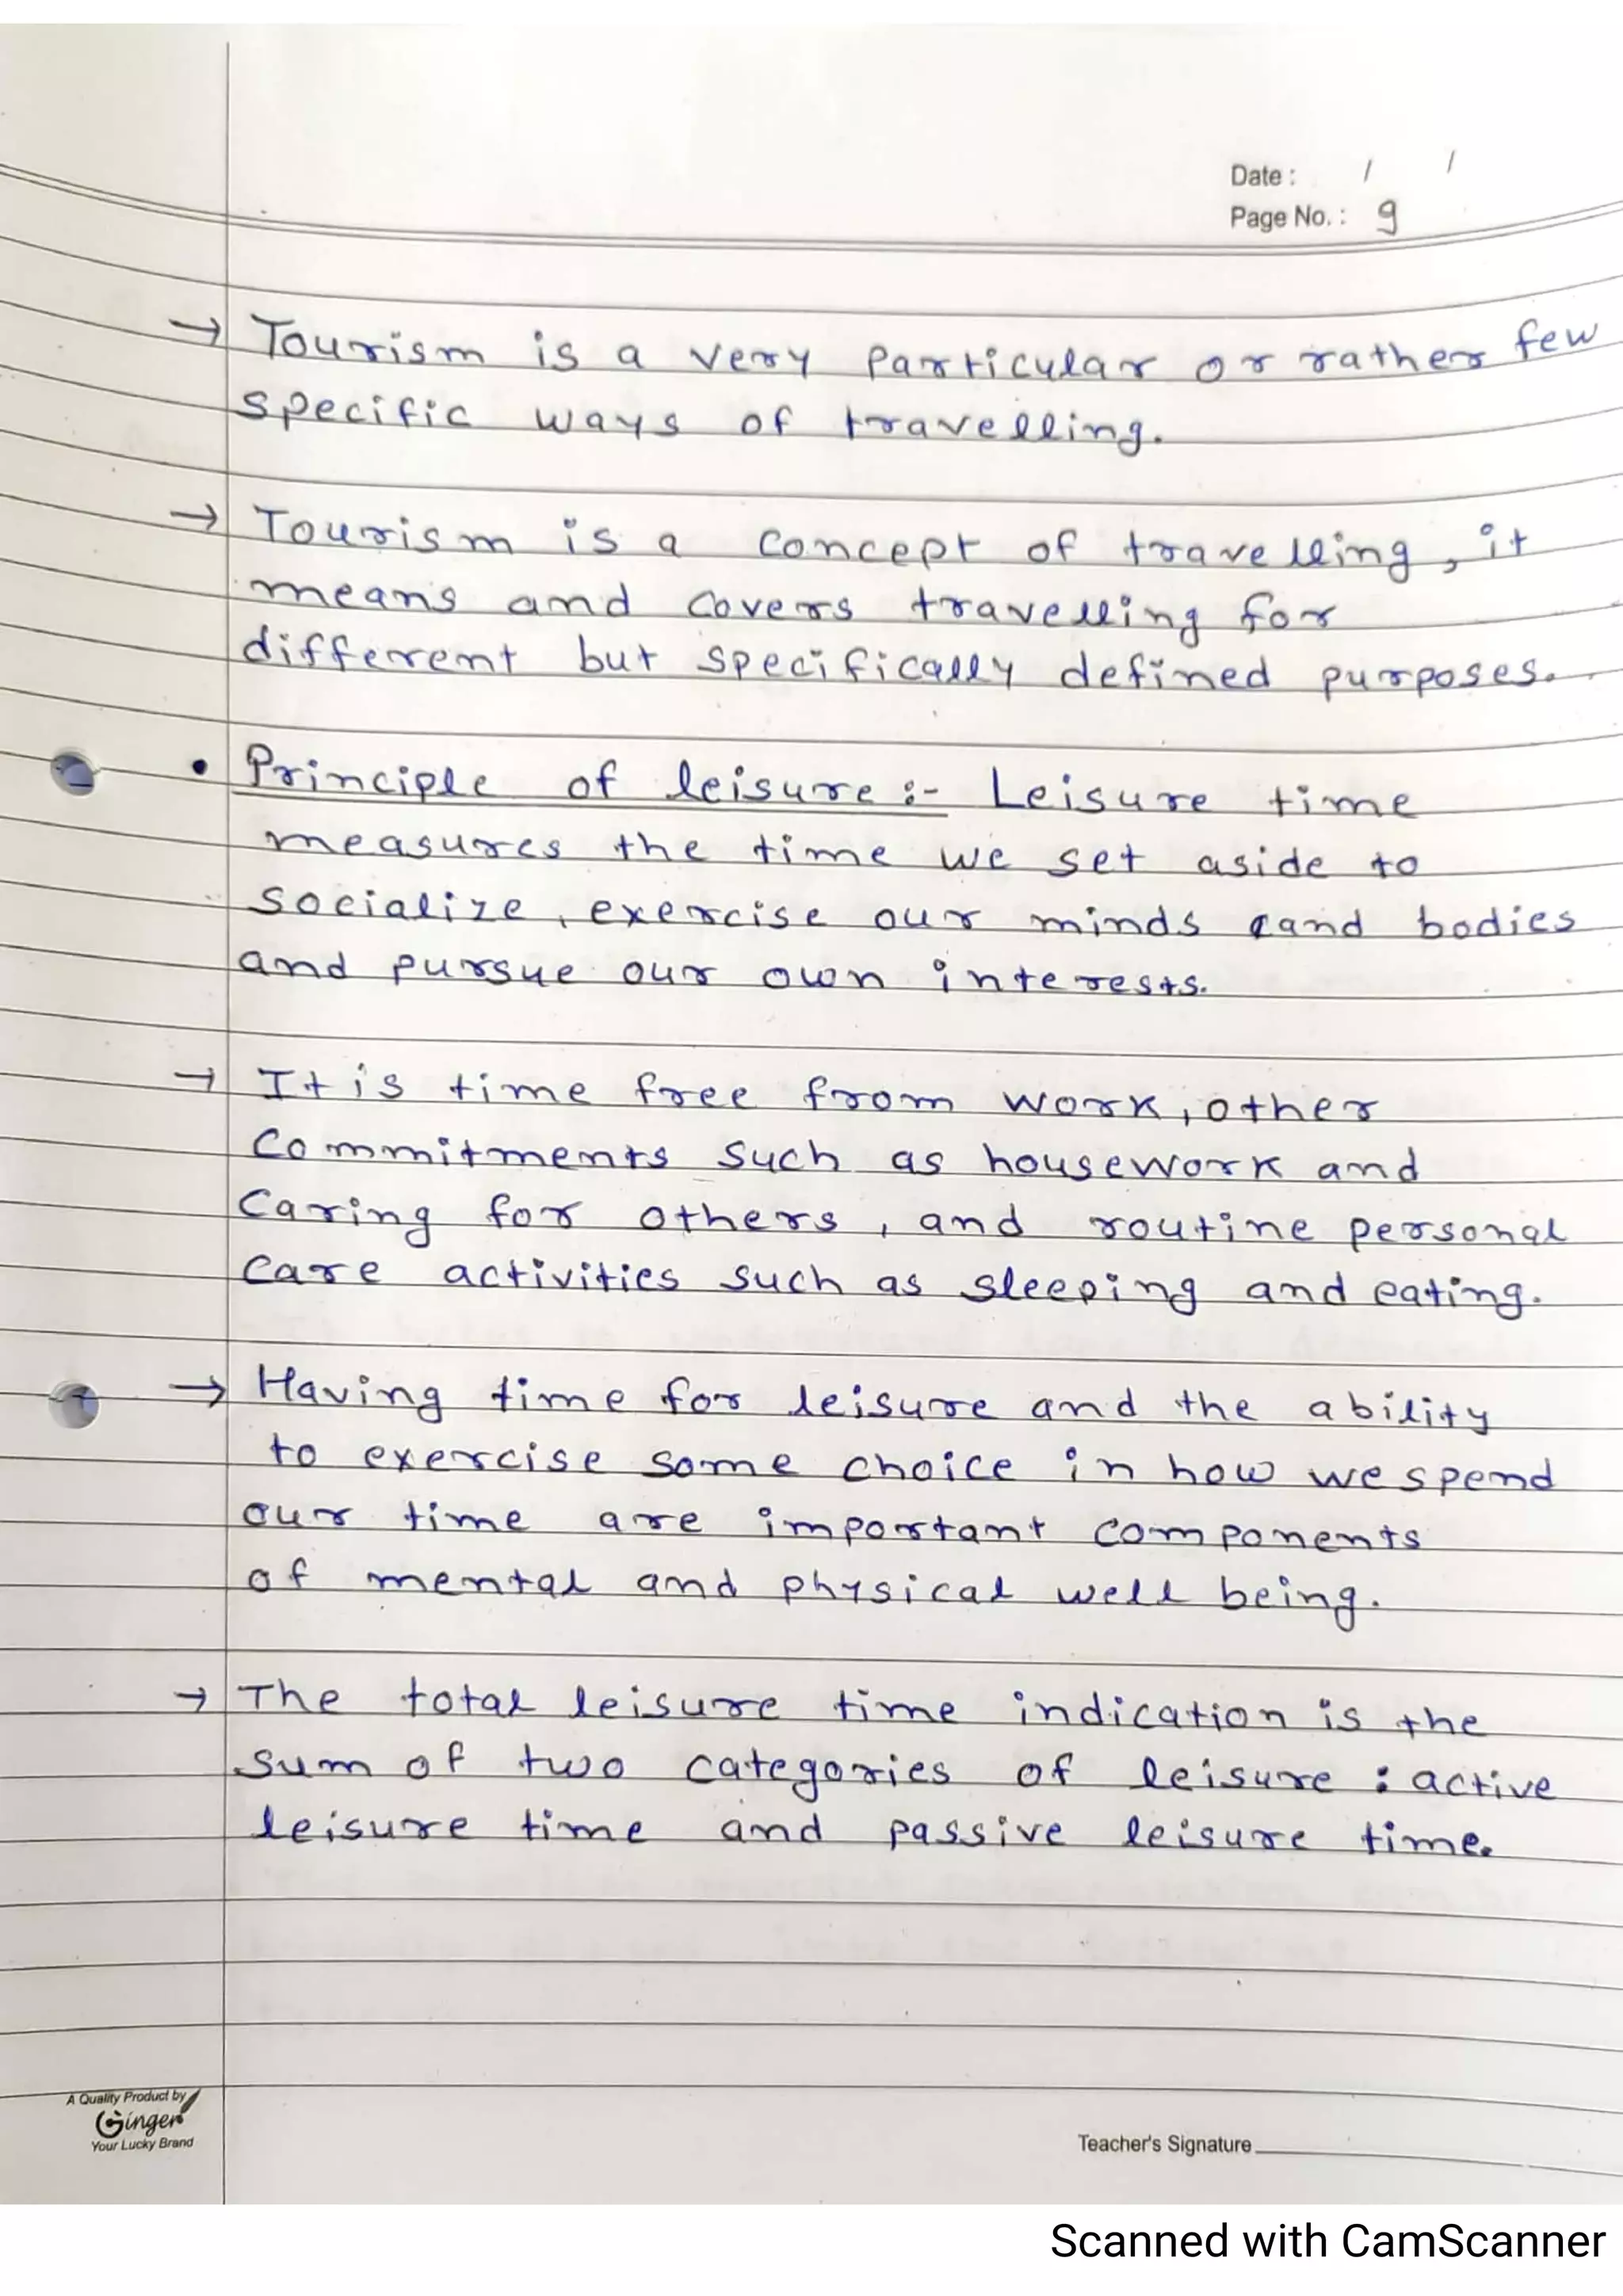 Date : / /
Page No. : 9
→ Tourism is a very particular or rather few
specific ways of travelling.
→ Tourism is a concept of travelling, it
means and covers travelling for
different but specifically defined purposes.
• Principle of leisure :- Leisure time
measures the time we set aside to
socialize, exercise our minds and bodies
and pursue our own interests.
→ It is time free from work, other
commitments such as housework and
caring for others, and routine personal
care activities such as sleeping and eating.
→ Having time for leisure and the ability
to exercise some choice in how we spend
our time are important components
of mental and physical well being.
→ The total leisure time indication is the
sum of two categories of leisure : active
leisure time and passive leisure time.
A Quality Product by
Ginger
Your Lucky Brand
Teacher's Signature
Scanned with CamScanner